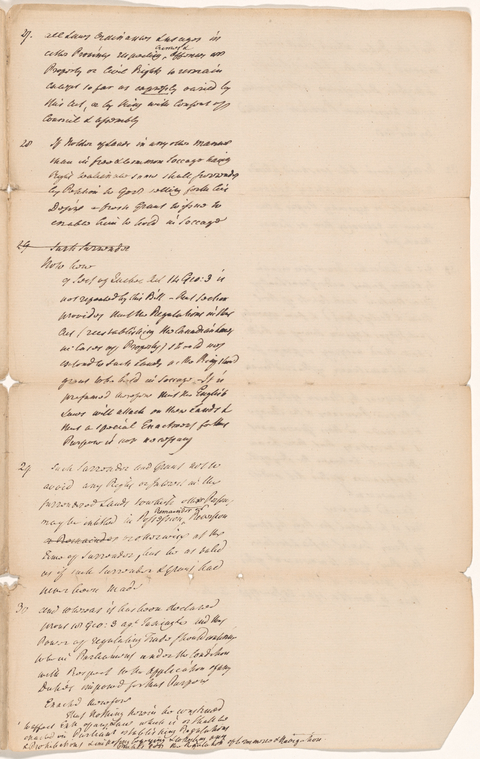 27. all Laws Ordinances & Usages in
either Province respecting criminal offences or
Property or Civil Rights to remain
except so far as expressly varied by
this Act, or by King with Consent of
Council & Assembly
28 If Holder of Lands in any other Manner
than in free & Common Soccage having
Right to alienate same shall surrender
by Petition to Govr setting forth his
Desire - fresh Grant to issue to
enable him to hold in Soccage
29 Such Surrender
Note how
9 Sect of Quebec Act 14 Geo: 3 is
not repealed by this Bill - that section
provides that the Regulations in this
Act (reestablishing the Canadian Laws
in Cases of Property) should not
extend to such Lands as the King should
grant to be held in Soccage - It is
presumed therefore that the English
Laws will attach on these Lands &
that a special Enactment for this
Purpose is not necessary
29 Such Surrender and Grant not to
avoid any Right or Interest in the
surrendered Lands to which other Person
may be intitled in Possession, Remainder or Reversion
or Remainder or otherwise at the
Time of Surrender, but be as valid
as if such Surrender & Grant had
never been made
30 and whereas it has been declared
Geo: 3 that
Power of regulating Trade should
in Parliament under the Condition
with Respect to the Application of any
Duties imposed for that Purpose
Enacted therefore
That nothing herein be construed
to affect Exn of any Law which is or shall be
enacted in Parliament establishing Regulations
& Prohibitions & imposing levying & collecting any
Duties for the Regulation of Commerce & Navigation